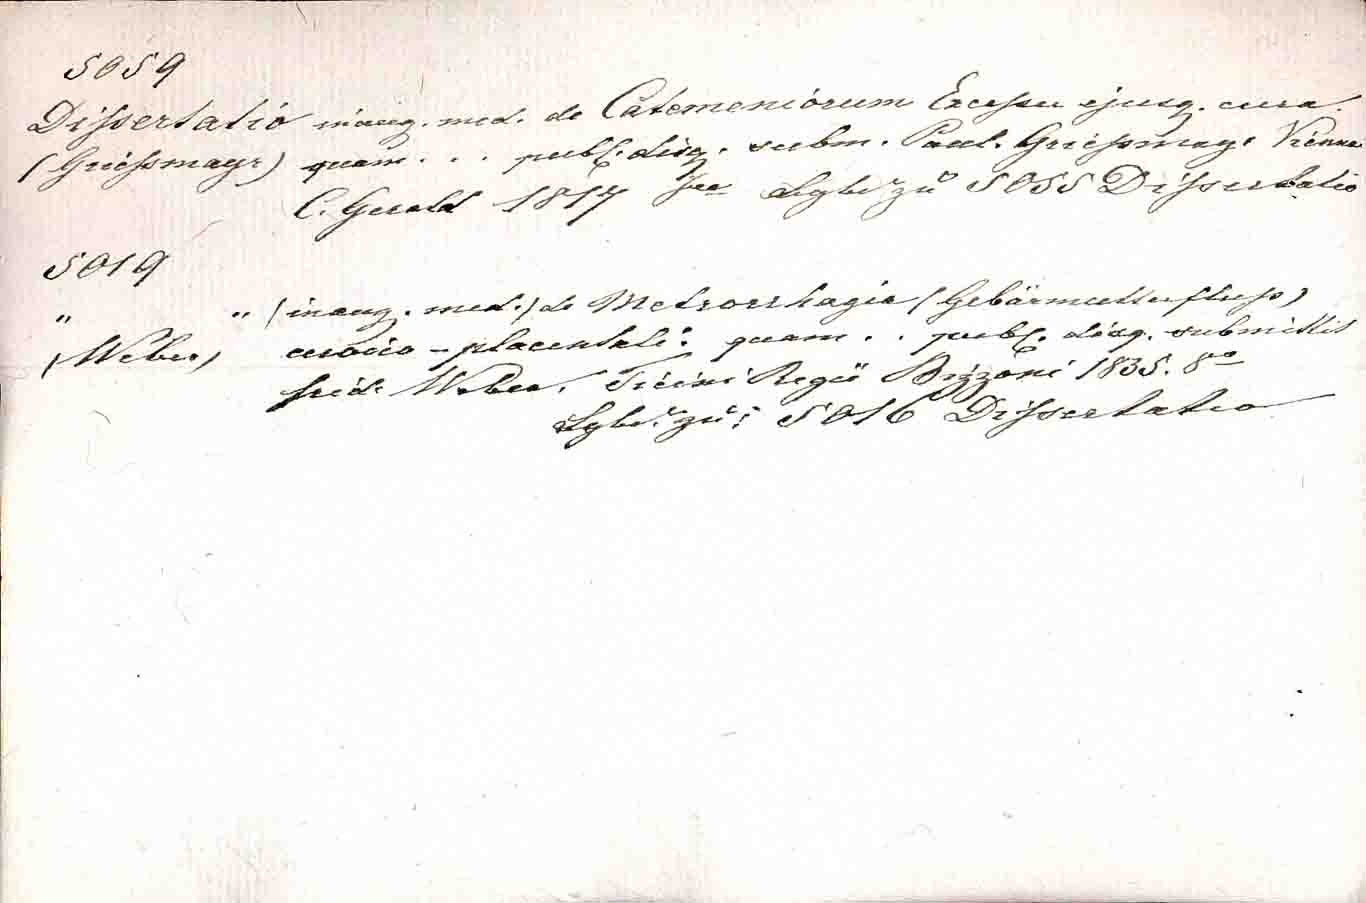 5059
Dissertatio inaug. med. de Catameniorum Excessu ejusq. cura.
(Griessmayr) quam . . . publ. disq. subm. Paul. Griessmayr Viennae
C. Gerold 1817 zu 5055 Dissertatio
5019
" " (inaug. med.) de Metrorrhagia (Gebärmutterfluss)
(Weber) uterino-placentali: quam . . publ. disq. submittit
frid. Weber. Ticini Regii Bizzoni 1835. 8°
zu: 5016 Dissertatio